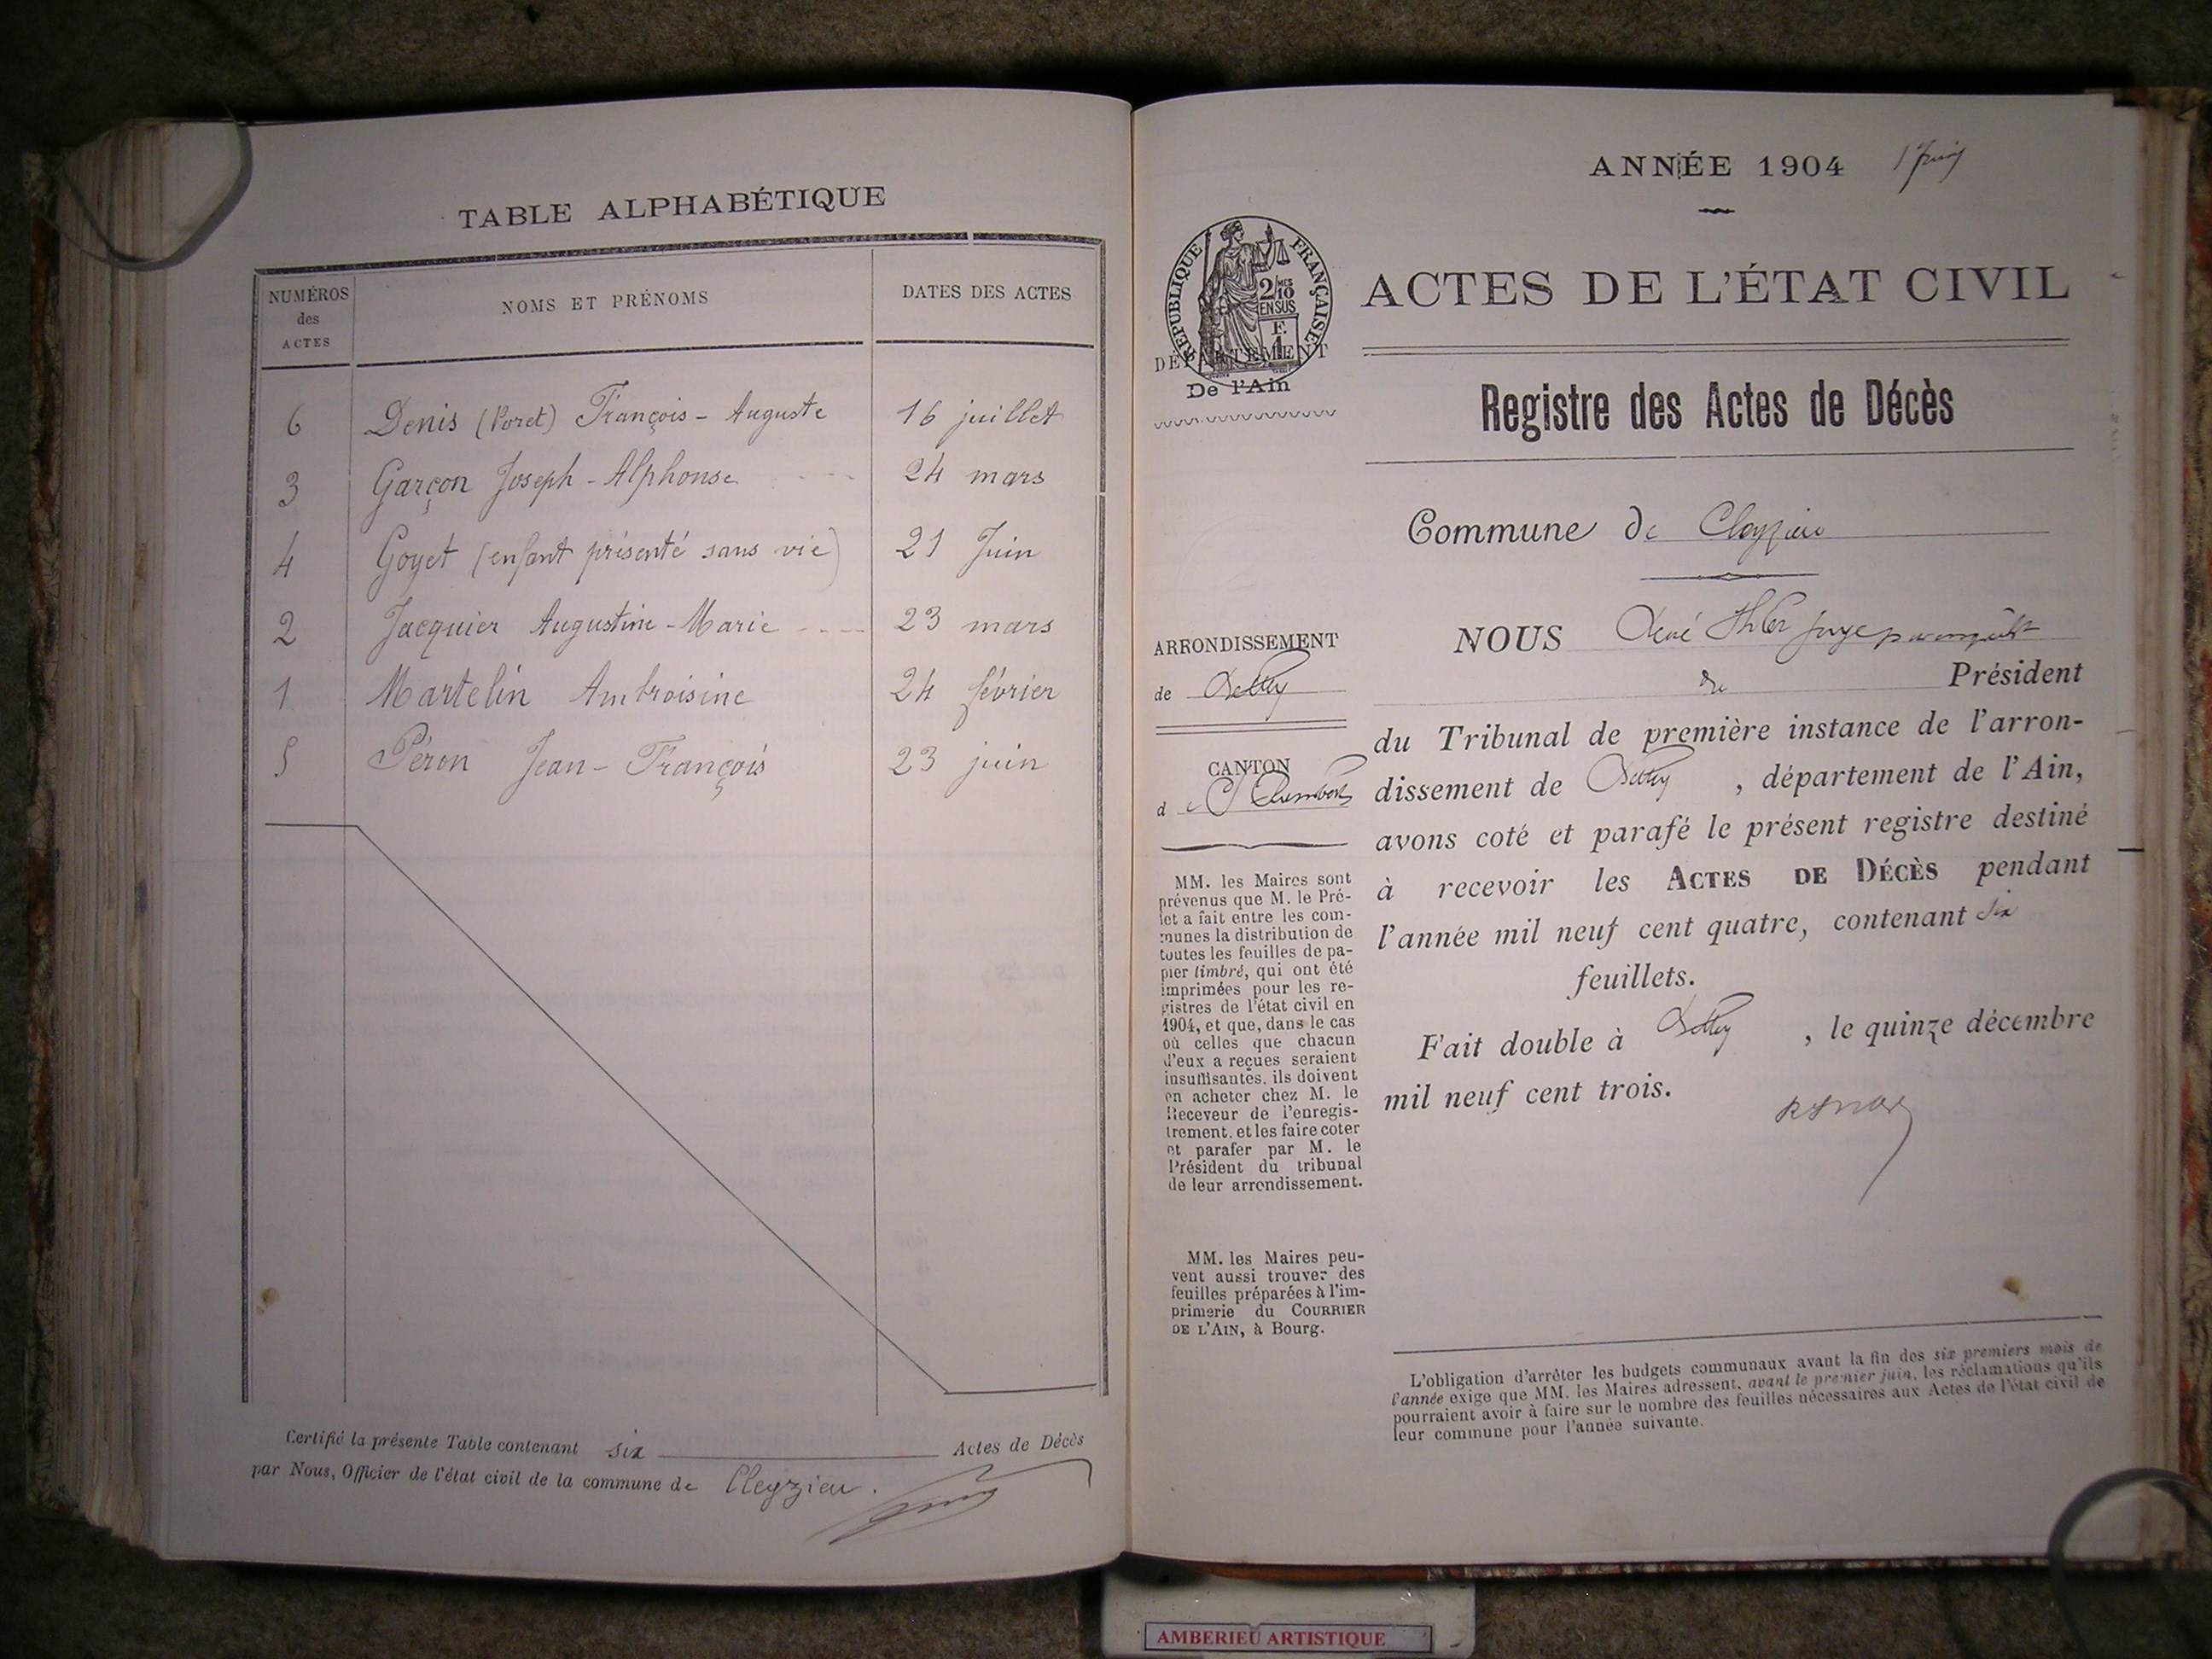 TABLE ALPHABÉTIQUE
NUMÉROS
des
ACTES
NOMS ET PRÉNOMS
DATES DES ACTES
6 Denis (Poret) François-Auguste 16 juillet
3 Garçon Joseph-Alphonse 24 mars
4 Goyet (enfant présenté sans vie) 21 Juin
2 Jacquier Augustine-Marie 23 mars
1 Martelin Ambroisine 24 février
5 Péron Jean-François 23 juin
Certifié la présente Table contenant six Actes de Décès
par Nous, Officier de l'état civil de la commune de Cleyzieu.
ANNÉE 1904
RÉPUBLIQUE FRANÇAISE
2/10
MES
EN SUS
F.
1
DÉPARTEMENT
De l'Ain
ACTES DE L'ÉTAT CIVIL
Registre des Actes de Décès
Commune de Cleyzieu
ARRONDISSEMENT
de Belley
CANTON
de St Rambert
MM. les Maires sont
prévenus que M. le Pré-
fet a fait entre les com-
munes la distribution de
toutes les feuilles de pa-
pier timbré, qui ont été
imprimées pour les re-
gistres de l'état civil en
1904, et que, dans le cas
où celles que chacun
d'eux a reçues seraient
insuffisantes, ils doivent
en acheter chez M. le
Receveur de l'enregis-
trement, et les faire coter
et parafer par M. le
Président du tribunal
de leur arrondissement.
MM. les Maires peu-
vent aussi trouver des
feuilles préparées à l'im-
primerie du COURRIER
DE L'AIN, à Bourg.
NOUS René juge
Président
du Tribunal de première instance de l'arron-
dissement de Belley, département de l'Ain,
avons coté et parafé le présent registre destiné
à recevoir les ACTES DE DÉCÈS pendant
l'année mil neuf cent quatre, contenant six
feuillets.
Fait double à Belley, le quinze décembre
mil neuf cent trois.
L'obligation d'arrêter les budgets communaux avant la fin des six premiers mois de
l'année exige que MM. les Maires adressent, avant le premier juin, les réclamations qu'ils
pourraient avoir à faire sur le nombre des feuilles nécessaires aux Actes de l'état civil de
leur commune pour l'année suivante.
AMBERIEU ARTISTIQUE